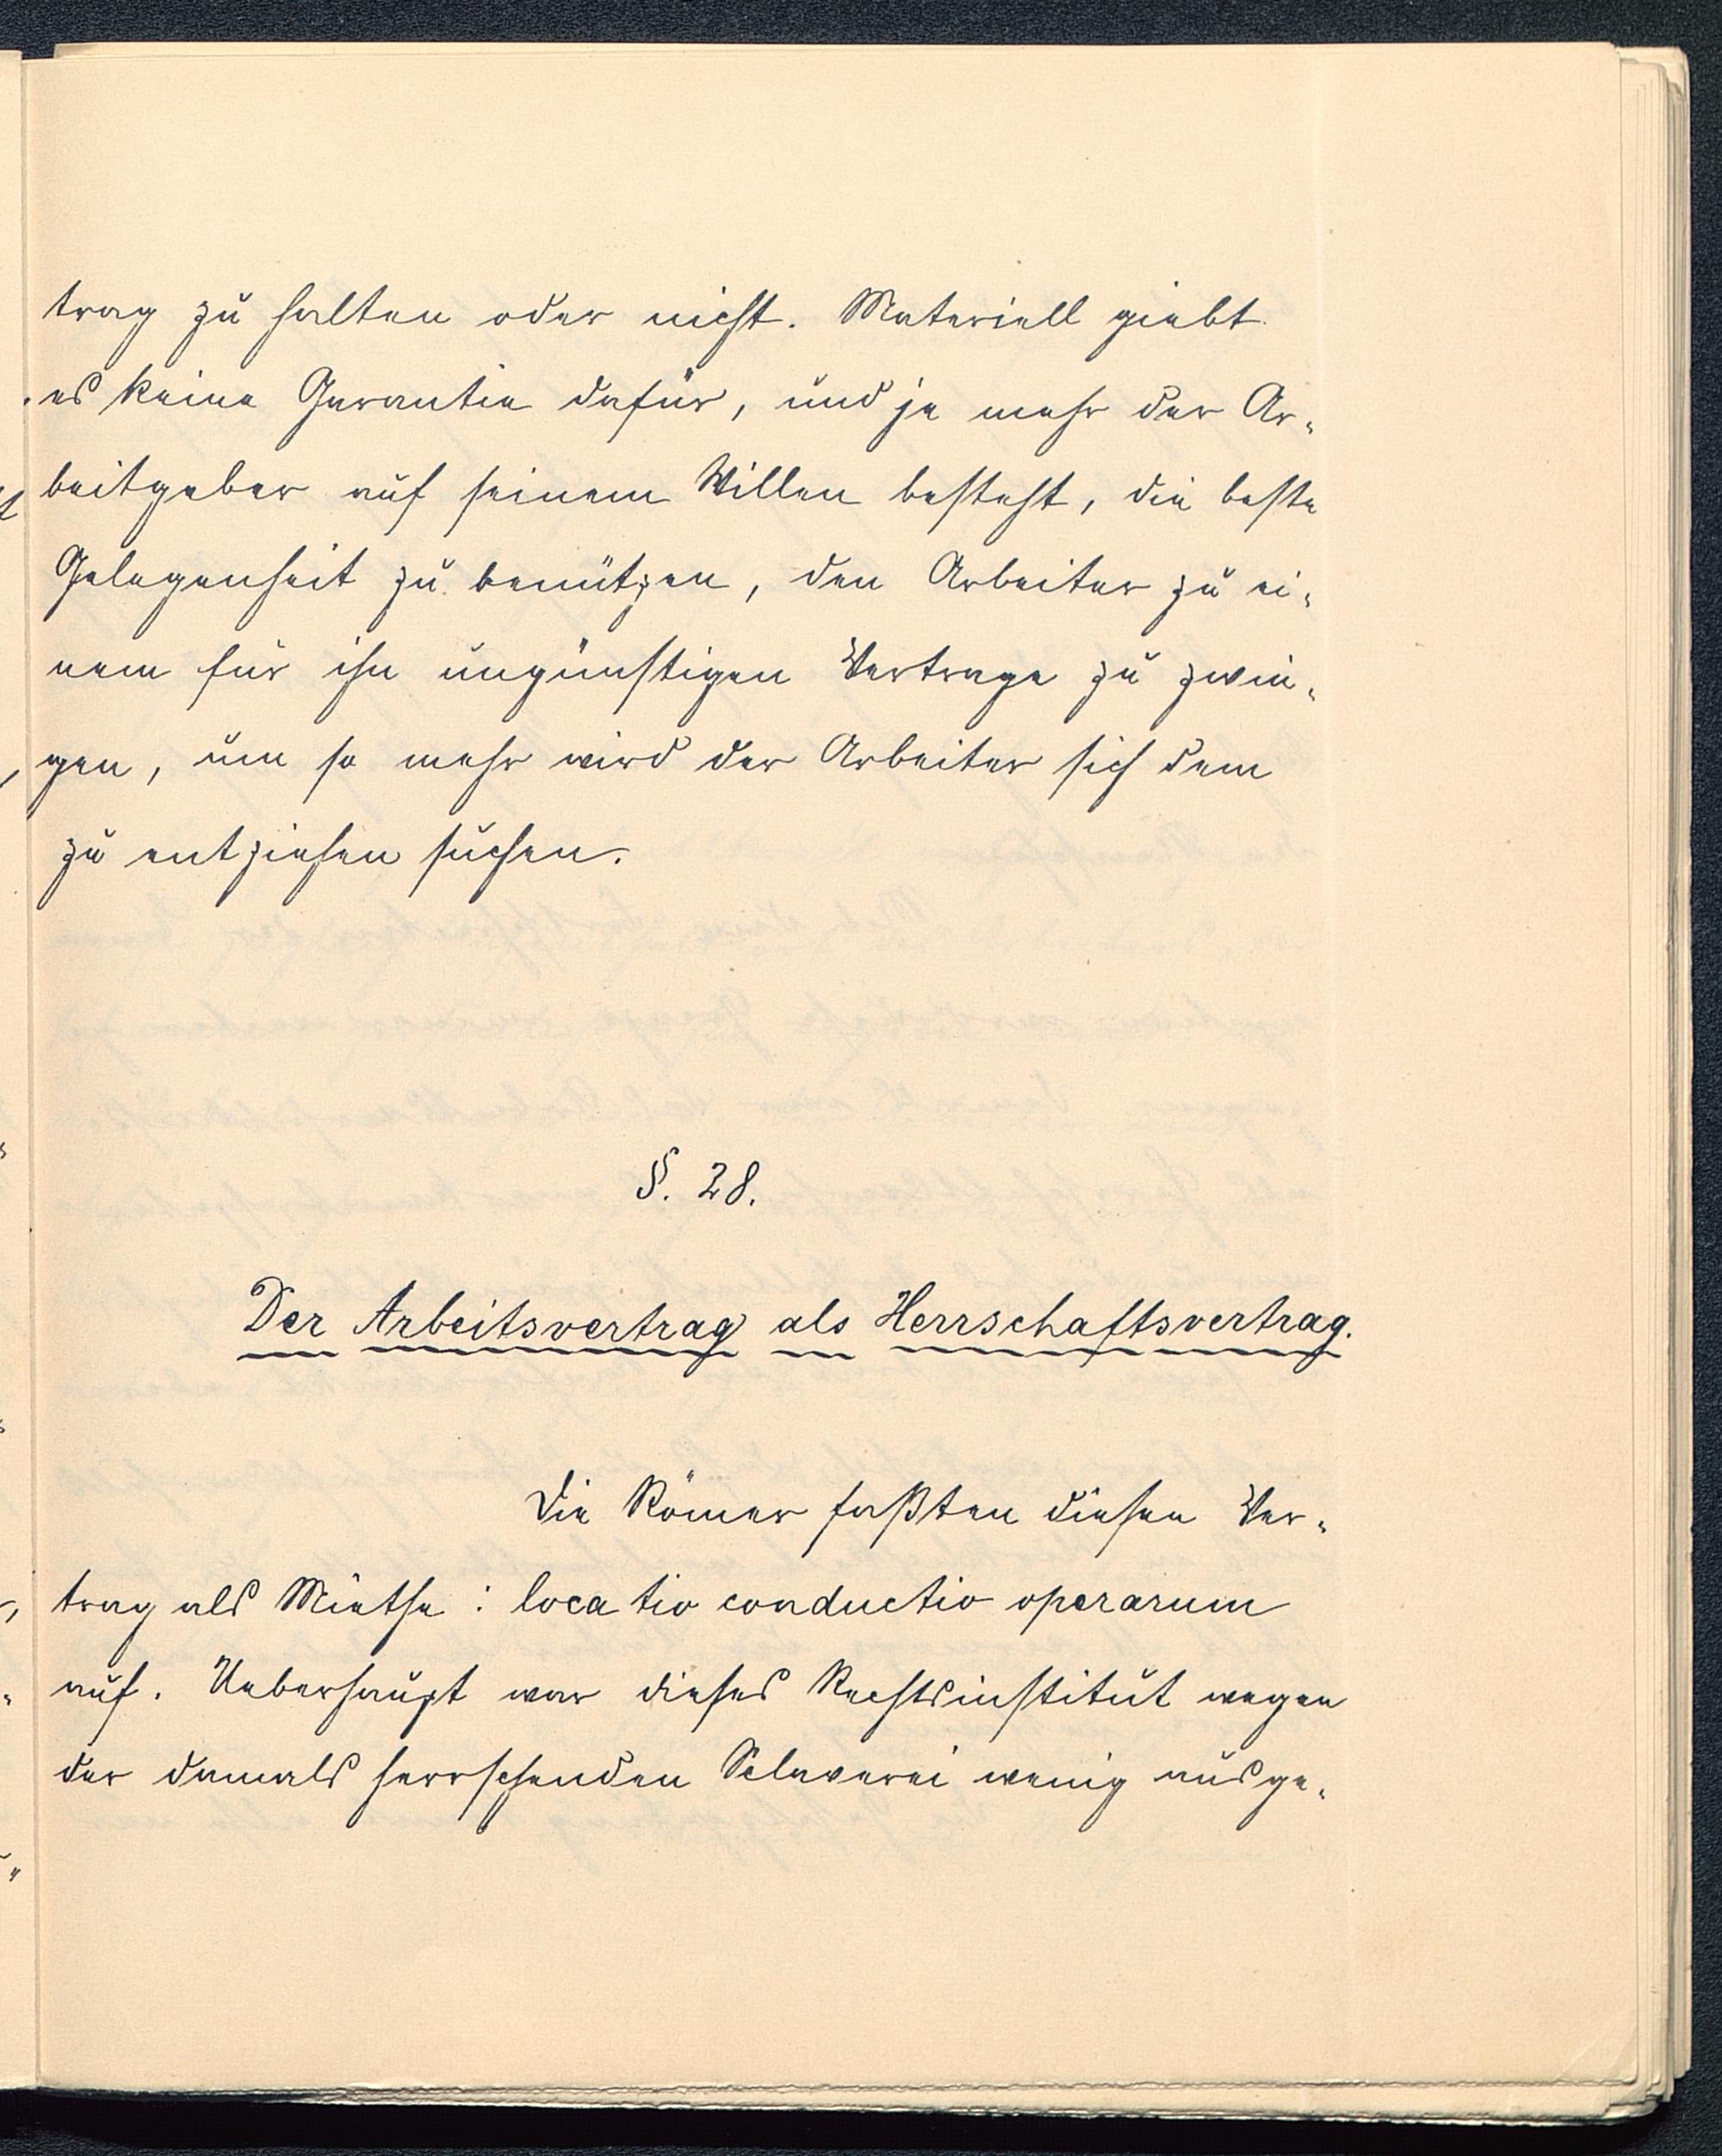 trag zu halten oder nicht. Materiell giebt
es keine Garantie dafür, und je mehr der Ar-
beitgeber auf seinem Willen besteht, die beste
Gelegenheit zu benützen, den Arbeiter zu ei-
nem für ihn ungünstigen Vertrage zu zwin-
gen, um so mehr wird der Arbeiter sich dem
zu entziehen suchen.
§. 28.
Der Arbeitsvertrag als Herrschaftsvertrag.
Die Römer faßten diesen Ver-
trag als Miethe: locatio conductio operarum
auf. Ueberhaupt war dieses Rechtsinstitut wegen
der damals herrschenden Sclaverei wenig ausge-